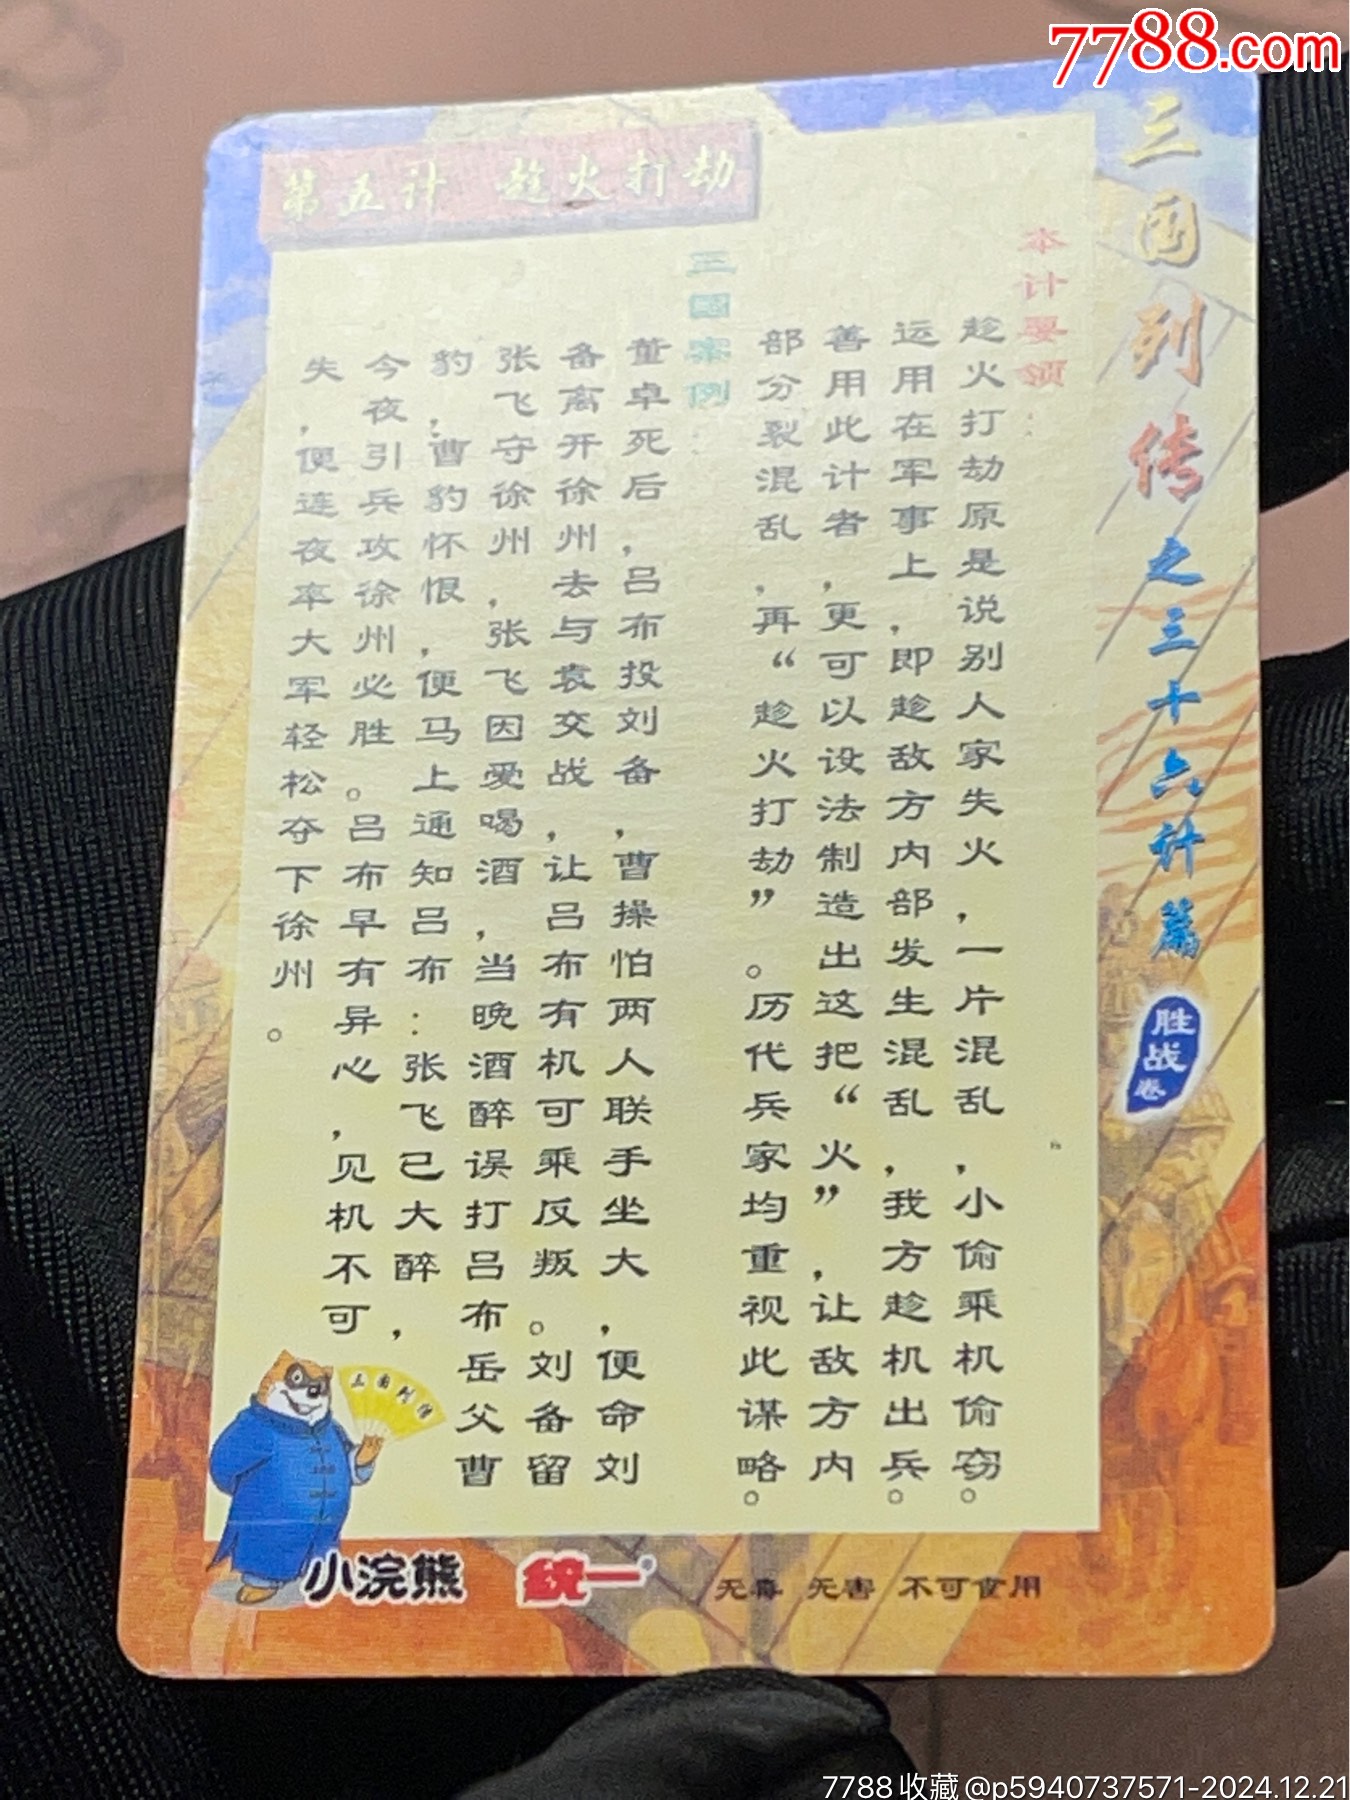 7788.com
三国列传之三十六计篇
胜战卷
第五计 趁火打劫
本计要领：
趁火打劫原是说别人家失火，一片混乱，小偷乘机偷窃。
运用在军事上，即趁敌方内部发生混乱，我方趁机出兵。
善用此计者，更可以设法制造出这把“火”，让敌方内
部分裂混乱，再“趁火打劫”。历代兵家均重视此谋略。
三国案例：
董卓死后，吕布投刘备，曹操怕两人联手坐大，便命刘
备离开徐州，去与袁交战，让吕布有机可乘反叛。刘备留
张飞守徐州，张飞因爱喝酒，当晚酒醉误打吕布岳父曹
豹，曹豹怀恨，便马上通知吕布：张飞已大醉，
今夜引兵攻徐州必胜。吕布早有异心，见机不可
失，便连夜率大军轻松夺下徐州。
三国列传
小浣熊 統一 无毒 无害 不可食用
7788收藏@p5940737571-2024.12.21